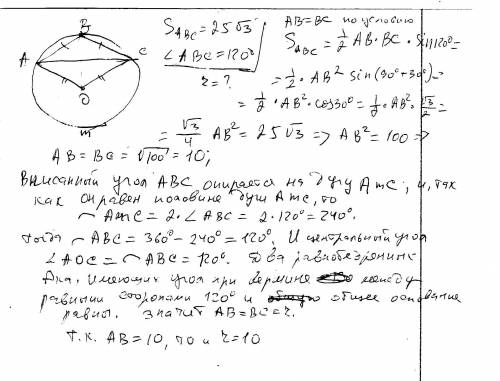 B
A
C
O
m
S_ABC = 25√3
∠ABC = 120°
r = ?
AB = BC по условию
S_ABC = 1/2 AB · BC · sin 120° =
= 1/2 · AB² sin(90° + 30°) =
= 1/2 · AB² · cos 30° = 1/2 · AB² · √3/2 =
= √3/4 AB² = 25√3 => AB² = 100 =>
AB = BC = √100 = 10;
Вписанный угол ABC опирается на дугу AmC, и, так
как он равен половине дуги AmC, то
◡ AmC = 2 · ∠ABC = 2 · 120° = 240°.
Тогда ◡ ABC = 360° - 240° = 120°. И центральный угол
∠AOC = ◡ ABC = 120°. Два равнобедренных
Δка, имеющих угол при вершине между
равными сторонами 120° и общее основание
равны. Значит AB = BC = r.
Т.к. AB = 10, то и r = 10